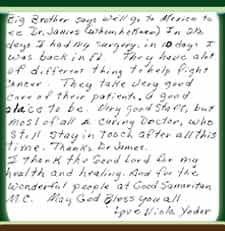 Big Brother says we'll go to Mexico to
see Dr. James (whom he knew) In 2½
days I had my surgery. in 10 days I
was back in FL. They have alot
of different thing to help fight
Cancer. They take very good
care of their patients, a good
place to be. Very good Staff, but
most of all a caring Doctor, who
still stay in touch after all this
time. Thanks Dr James.
I thank the Good Lord for my
health and healing. And for the
wonderful people at Good Samaritan
M.C. May God Bless you all
Love Viola Yoder